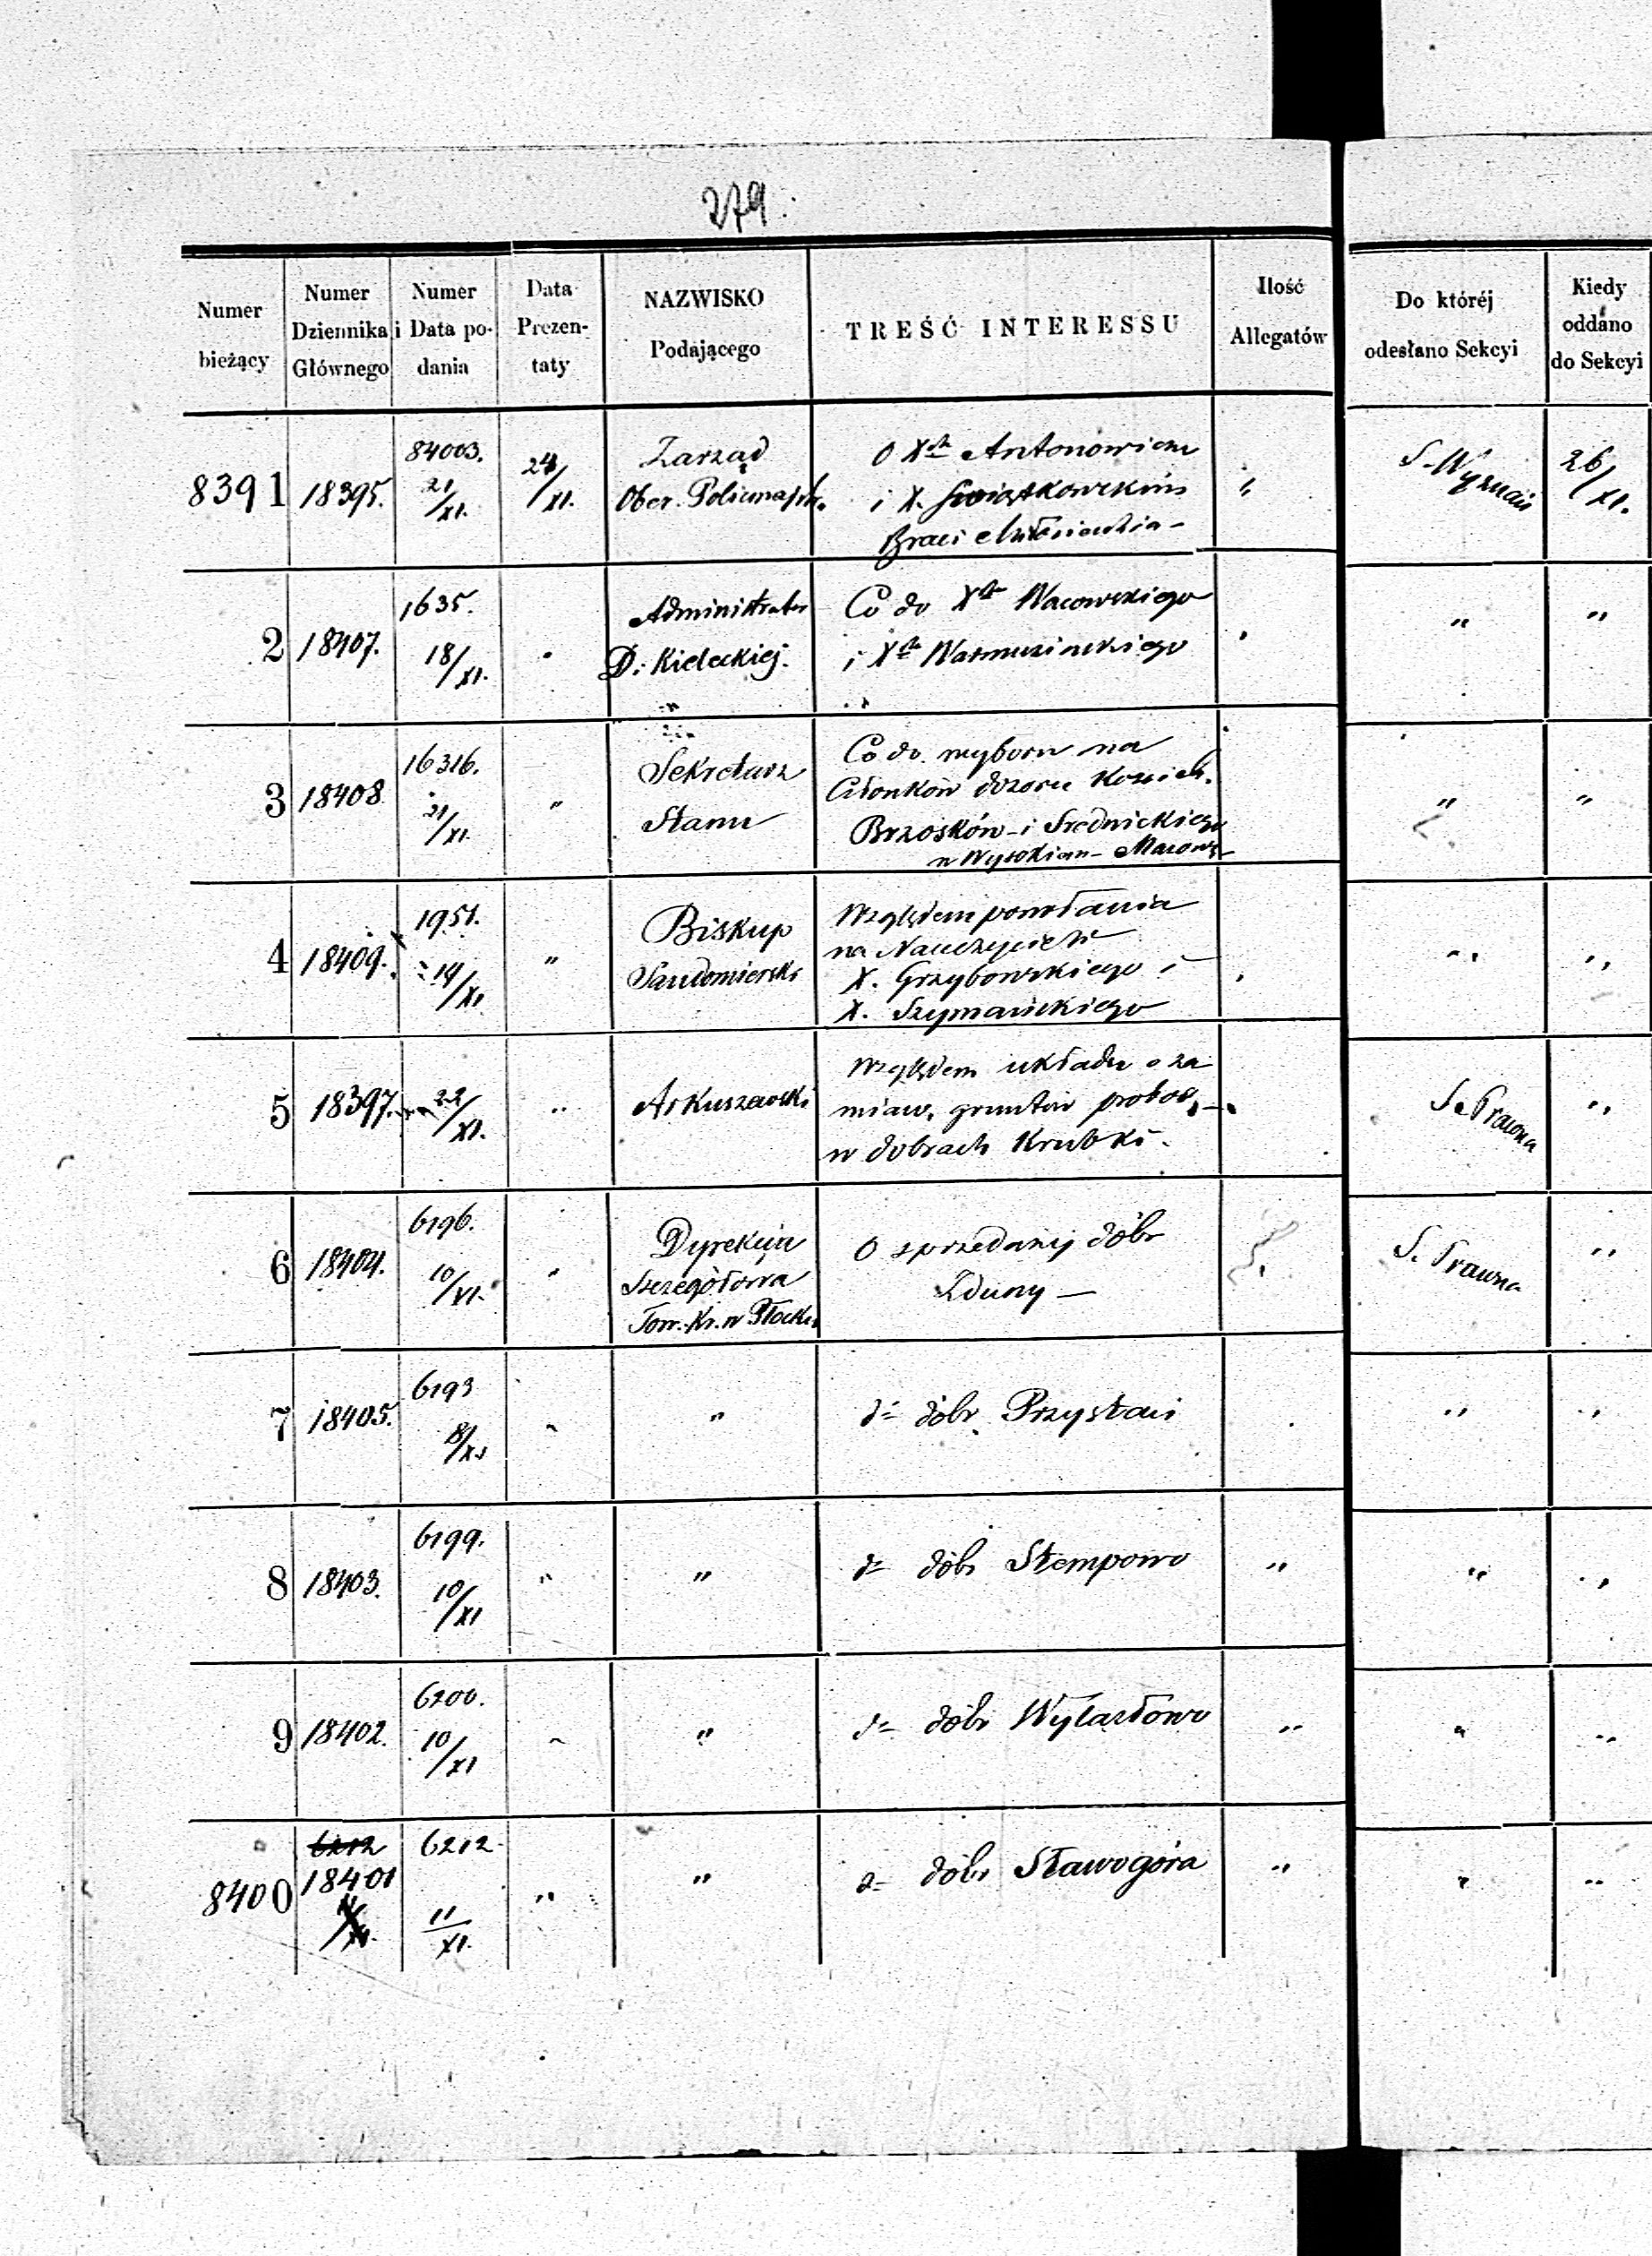 279.
Numer bieżący
Numer Dziennika Głównego
Numer i Data podania
Data Prezentaty
NAZWISKO Podającego
TREŚĆ INTERESSU
Ilość Allegatów
Do któréj odesłano Sekcyi
Kiedy oddano do Sekcyi
8391 18395. 84003. 21/XI. 24/XI.
Zarząd
Ober. Policmajstr.
O Xdzu Antonowiczu
i X. Świątkowskim
Braci
"
S. Wyznań
26/XI.
2 18407. 1635. 18/XI. "
Administrator
D. Kieleckiej.
Co do Xdza Wacowskiego
i Xdza
" "
3 18408 16316. 21/XI. "
Sekretarz
Stanu
Co do wyboru na
Członków dozoru Kości.
Brzosków i Srednickiego
w Wysokiem Mazow.
" "
4 18409. 1951. 14/XI. "
Biskup
Sandomierski
Względem powołania
na Nauczycieli
X. Grzybowskiego i
X. Szymańskiego
" "
5 18397. 22/XI. "
Arkuszewski
Względem układu o za
mian. gruntów probos.
w dobrach Krubki.
S. Prawna "
6 18404. 6196. 10/XI. "
Dyrekcja
Szczegółowa
Tow. Kr. w Płocku
O sprzedaży dóbr
Zduny —
S. Prawna "
7 18405. 6193 8/XI "
"
do dóbr Przystań
" "
8 18403. 6199. 10/XI "
"
do dóbr Stempowo
" " "
9 18402. 6200. 10/XI "
"
do dóbr Wylazłowo
" " "
8400 6212 18401 6212 11/XI. "
"
do dóbr Sławogóra
" " "